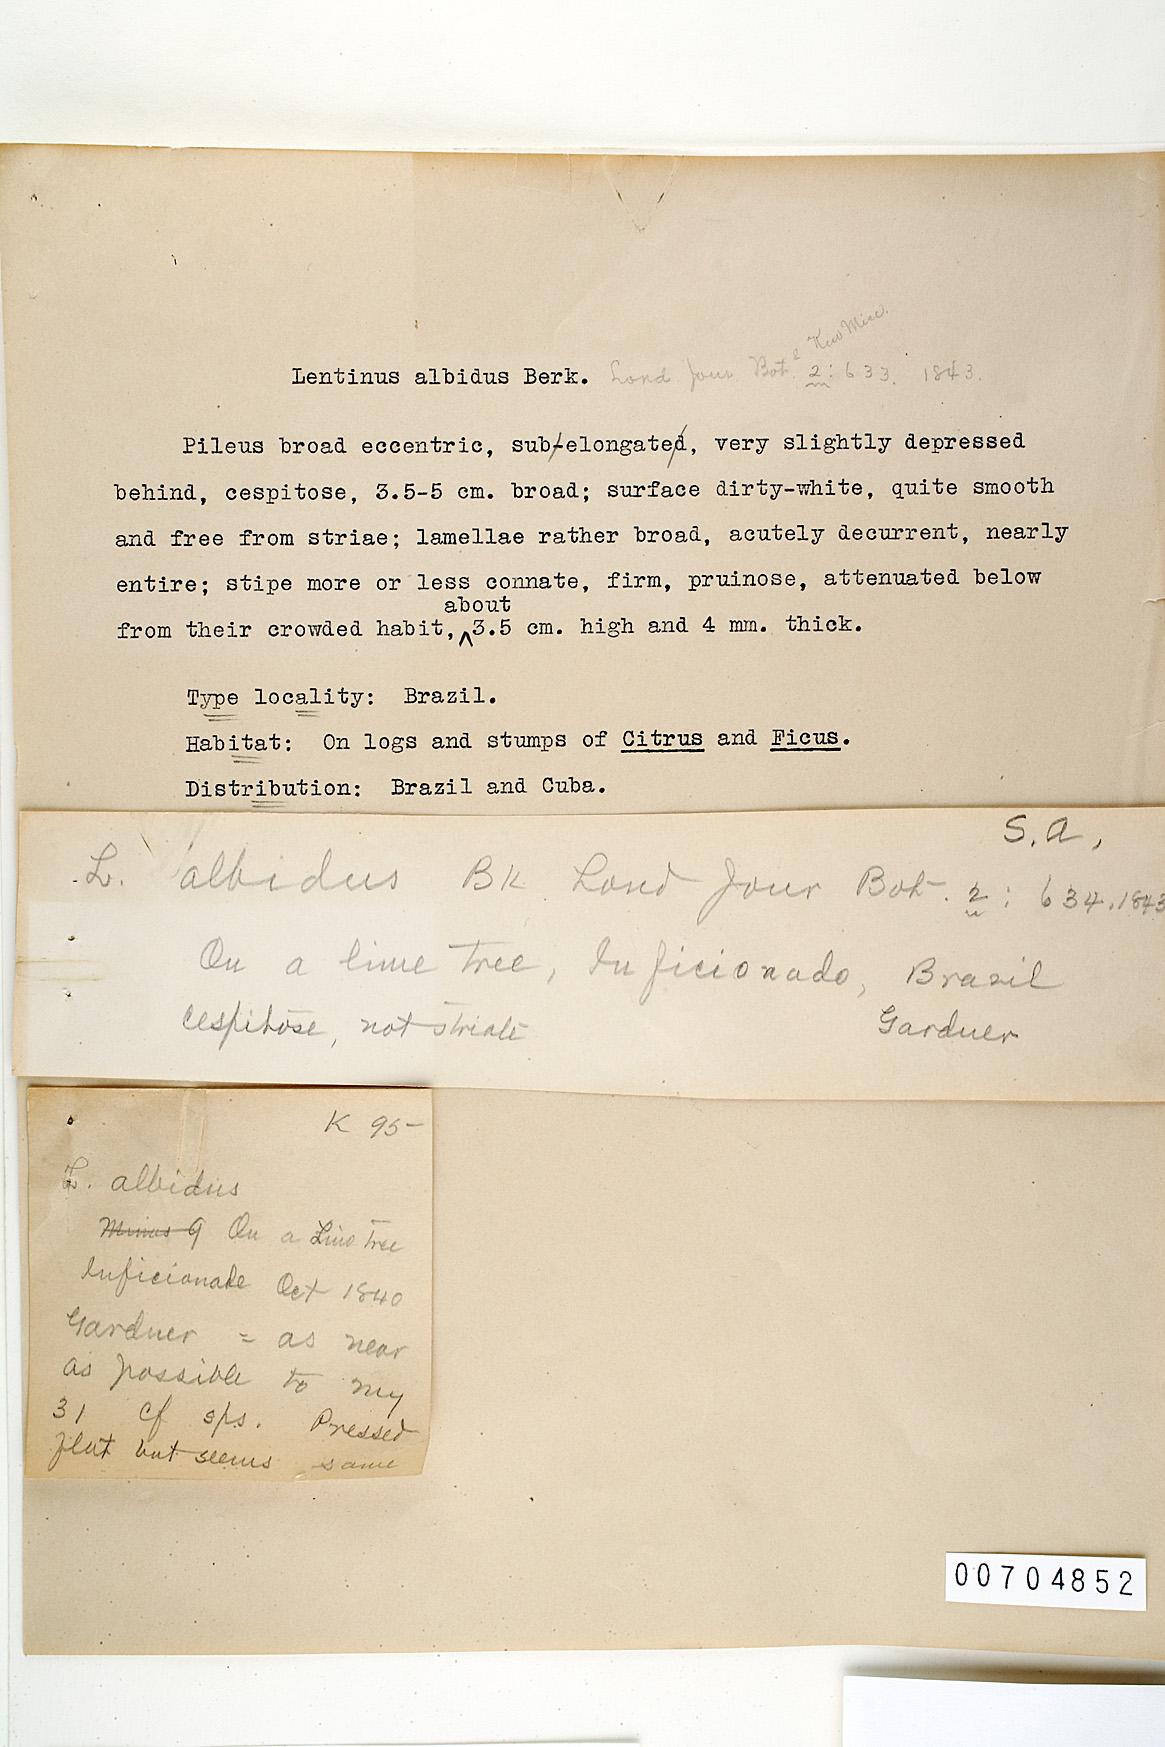 Lentinus albidus Berk. Lond Jour Bot. & Kew Misc. 2: 633. 1843.
Pileus broad eccentric, sub-elongated, very slightly depressed
behind, cespitose, 3.5-5 cm. broad; surface dirty-white, quite smooth
and free from striae; lamellae rather broad, acutely decurrent, nearly
entire; stipe more or less connate, firm, pruinose, attenuated below
about
from their crowded habit, ^ 3.5 cm. high and 4 mm. thick.
Type locality: Brazil.
Habitat: On logs and stumps of Citrus and Ficus.
Distribution: Brazil and Cuba.
S. A.
L. albidus BK Lond Jour Bot. 2: 634. 1843
On a lime tree, Inficionado, Brazil
cespitose, not striate Gardner
K 95-
L. albidus
Minas 9 On a Lime Tree
Inficionade Oct 1840
Gardner = as near
as possible to my
31 cf sps. Pressed
flat but seems same
00704852